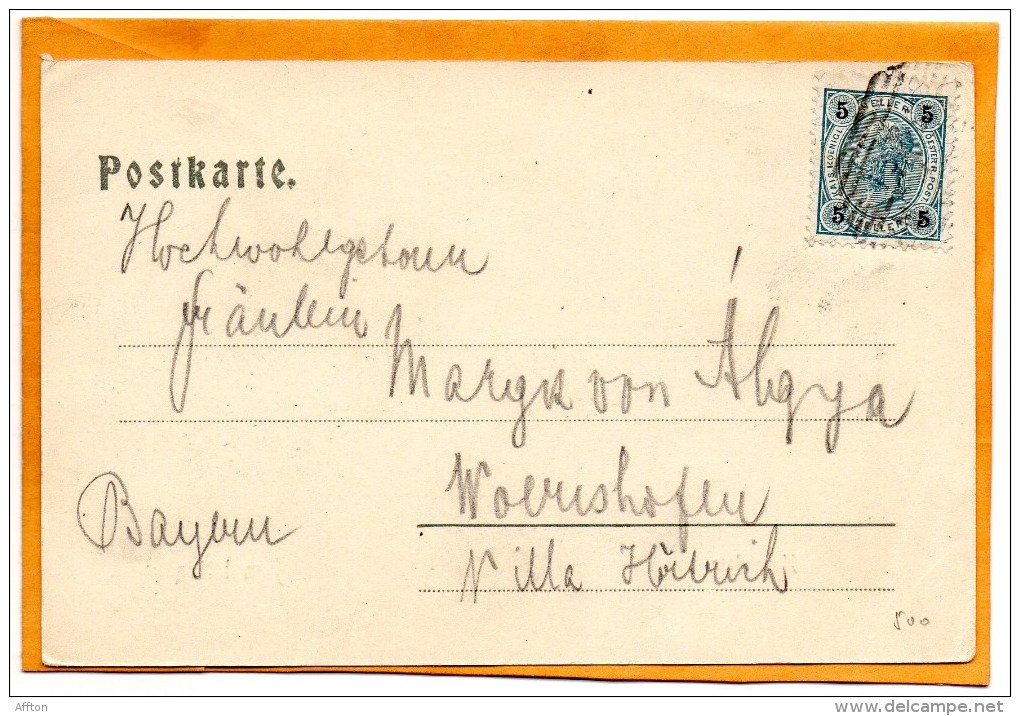 Postkarte.
5 HELLER 5
KAIS. KOENIGL. OESTERR. POST
5 HELLER 5
Hochwohlgeboren
Fräulein
Marga von Ábgya
Woerishofen
Bayern
Villa
500
Affton
delcampe.net